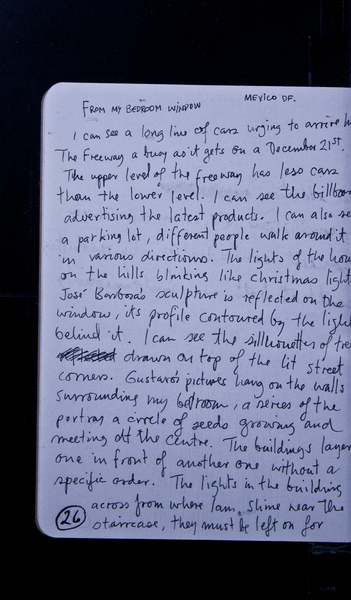 MEXICO DF.
FROM MY BEDROOM WINDOW
I can see a long line of cars urging to arrive h
The Freeway a busy as it gets on a December 21st.
The upper level of the freeway has less cars
than the lower level. I can see the billboar
advertising the latest products. I can also se
a parking lot, different people walk around it
in various directions. The lights of the hou
on the hills blinking like christmas light
José Barbosa's sculpture is reflected on the
window, its profile contoured by the light
behind it. I can see the sillhouettes of tre
drawn on top of the lit street
corners. Gustavo's pictures hang on the walls
surrounding my bedroom, a series of the
portray a circle of seeds growing and
meeting at the centre. The buildings layer
one in front of another one without a
specific order. The lights in the building
across from where I am, shine near the
staircase, they must be left on for
26